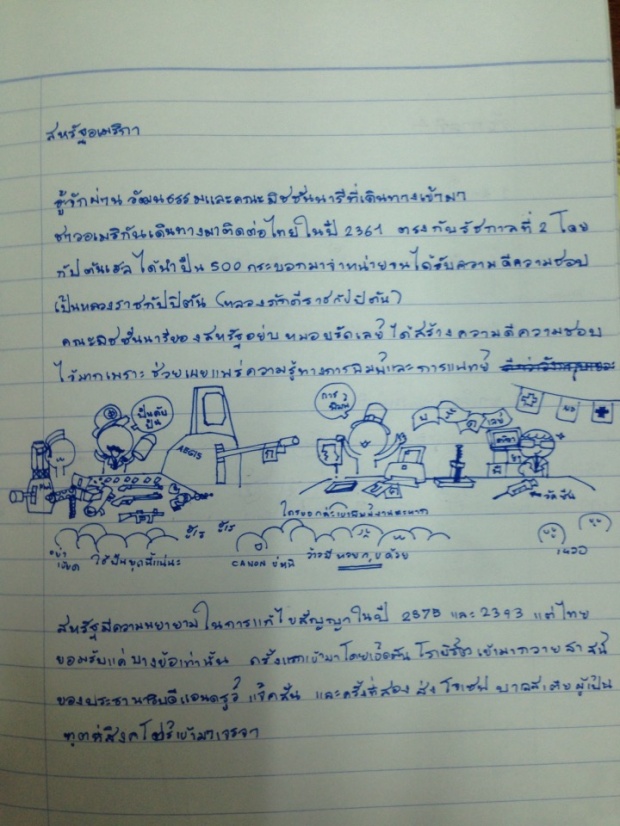 สหรัฐอเมริกา
รู้จักผ่าน วัฒนธรรมและคณะมิชชันนารีที่เดินทางเข้ามา
ชาวอเมริกันเดินทางมาติดต่อไทยในปี 2361 ตรงกับรัชกาลที่ 2 โดย
กัปตันเฮล ได้นำปืน 500 กระบอกมาจำหน่ายจนได้รับความดีความชอบ
เป็นหลวงราชกัปปิตัน (หลวงภักดีราชกัปปิตัน)
คณะมิชชันนารีของสหรัฐอย่าง หมอบรัดเลย์ ได้สร้างความดีความชอบ
ไว้มากเพราะ ช่วยเผยแพร่ความรู้ทางการพิมพ์และการแพทย์
ปืนครับ
ปืน
AEGIS
การ
พิมพ์
บ รั ด เลย์
วัคซีน
ใช้ปืนยุคนี้แน่นะ
CANON
สหรัฐมีความพยายามในการแก้ไขสัญญาในปี 2375 และ 2393 แต่ไทย
ยอมรับแค่ บางข้อเท่านั้น ครั้งแรกเข้ามาโดยเอ็ดมัน โรเบิร์ต เข้ามาถวายสาสน์
ของประธานาธิบดีแอนดรูว์ แจ็คสัน และครั้งที่สอง ส่ง โจเซฟ บาลเลสเตีย ผู้เป็น
ทูตที่สิงคโปร์เข้ามาเจรจา